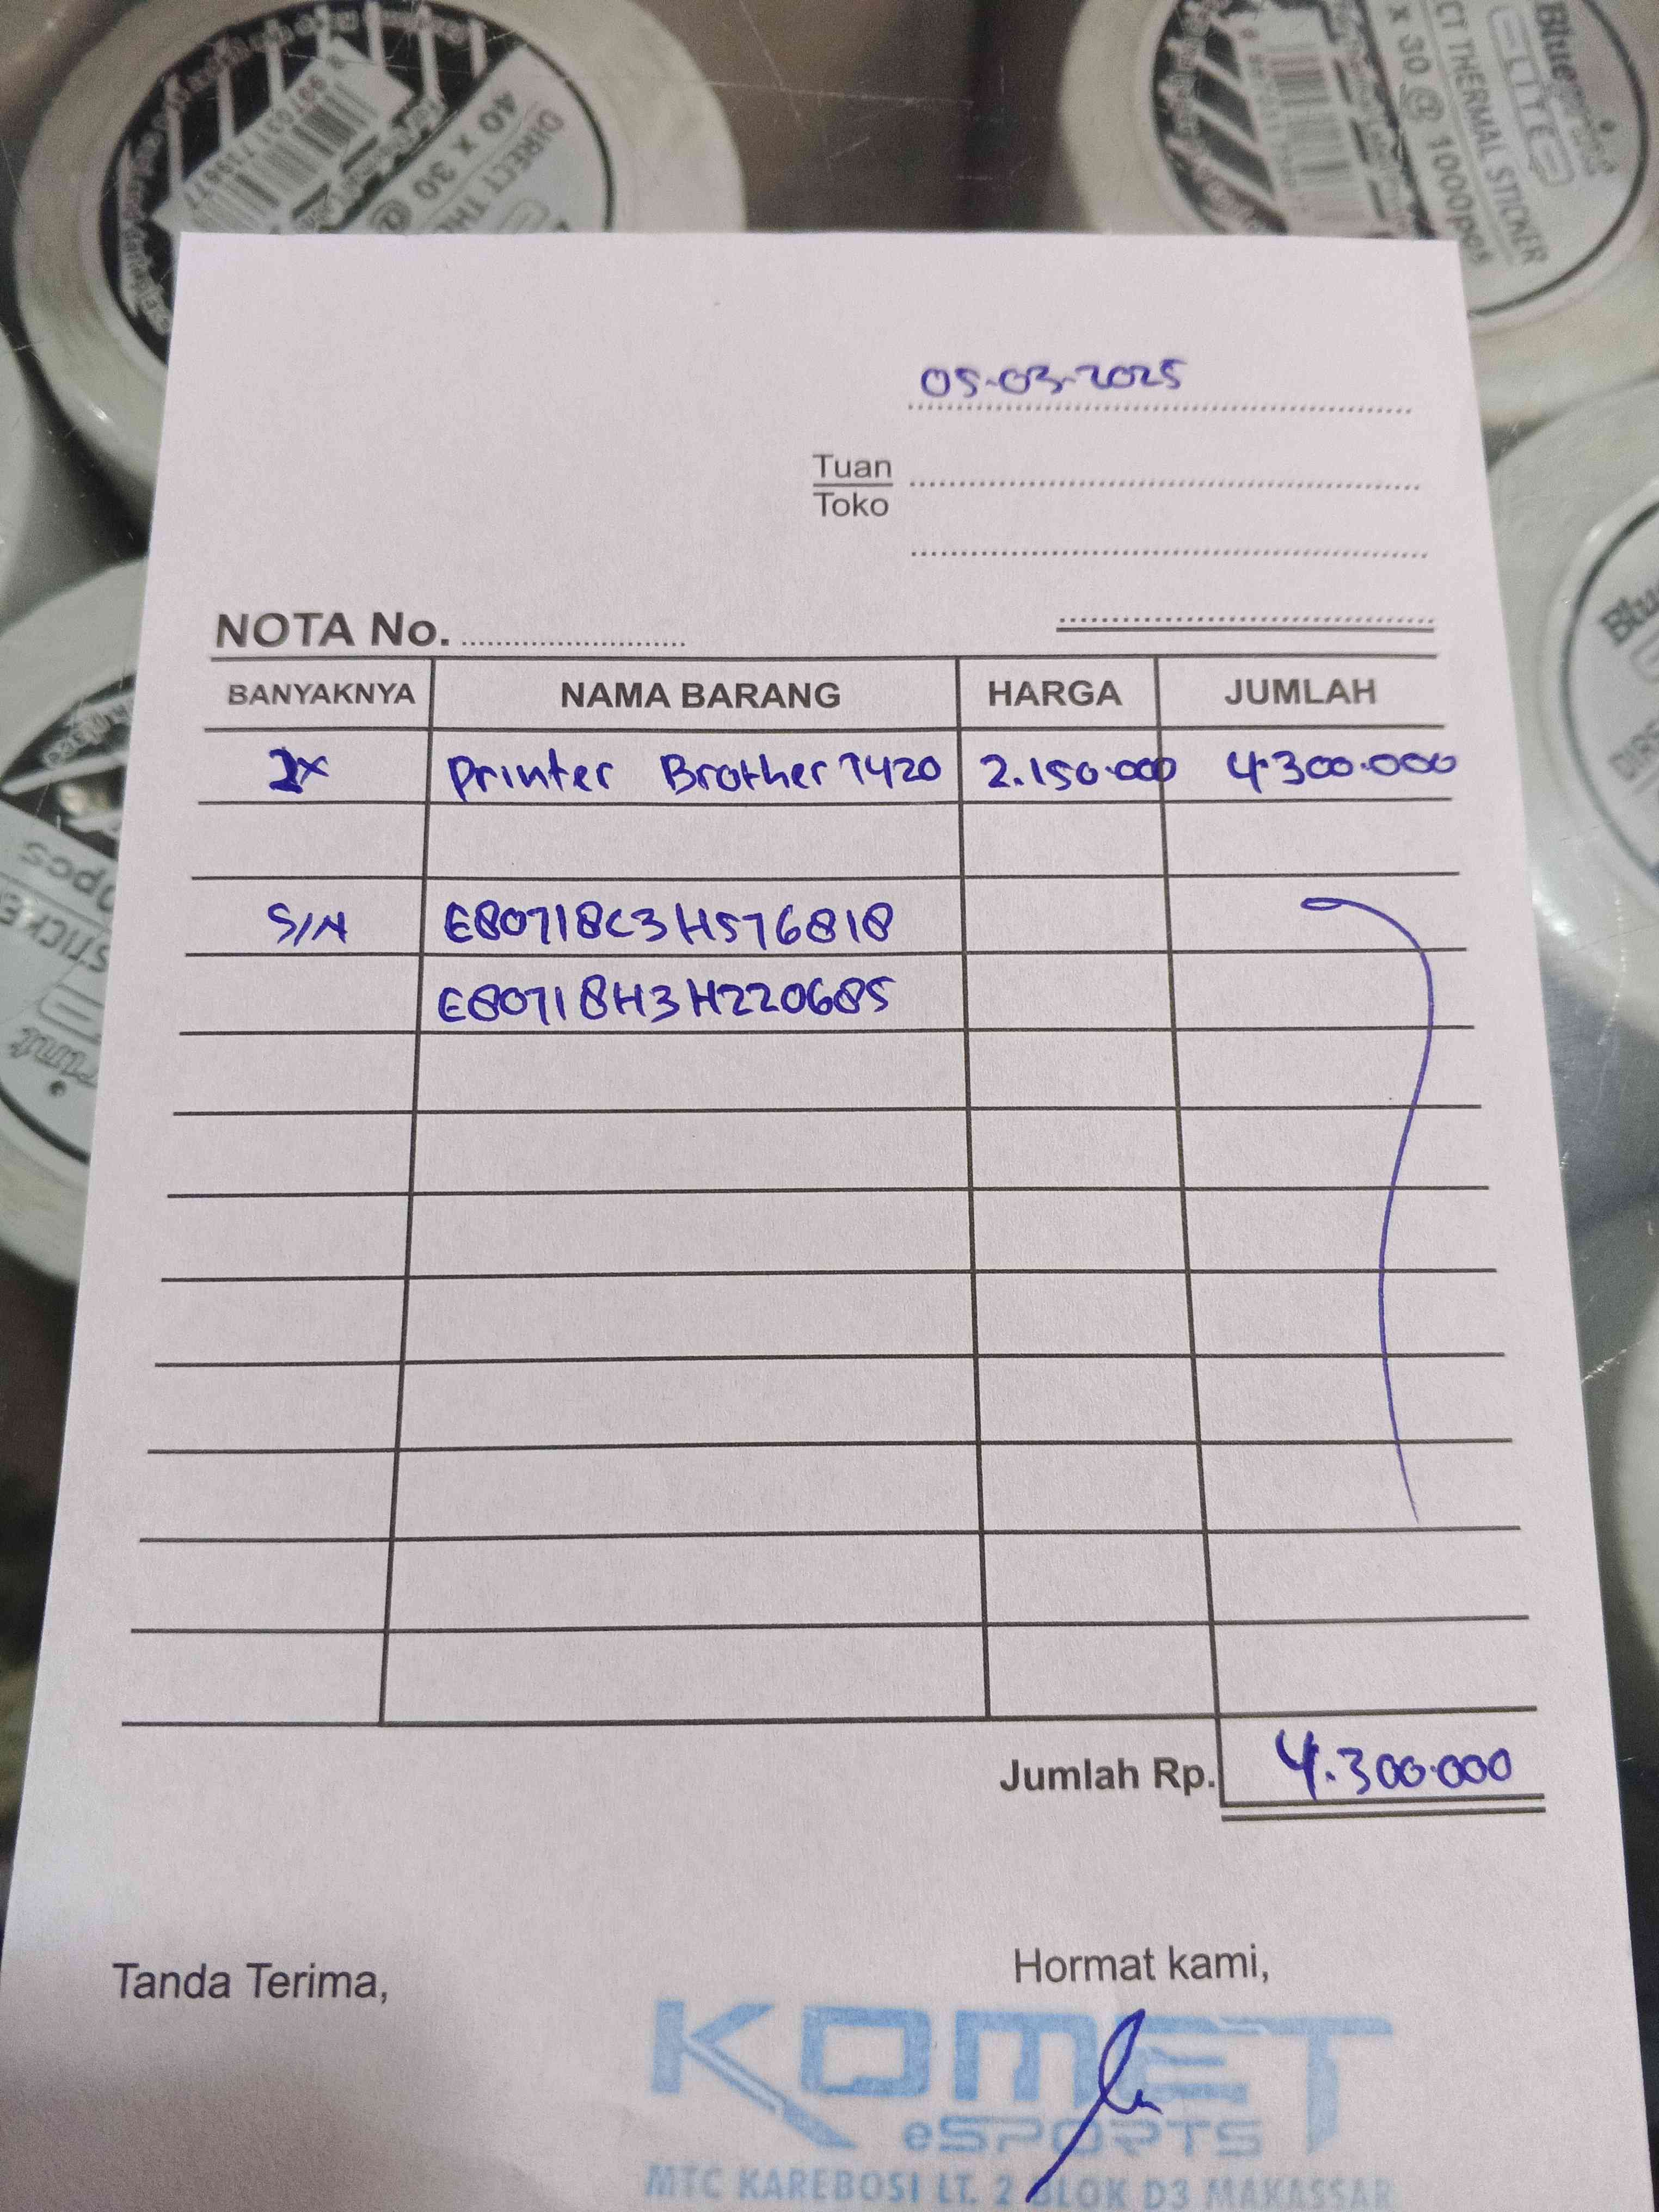 DIRECT THE
40 x 30 @
9 937031 739677
Blueprint
ELITE
CT THERMAL STICKER
x 30 @ 1000pcs
05-03-2025
Tuan
Toko
NOTA No.
BANYAKNYA NAMA BARANG HARGA JUMLAH
2x Printer Brother T420 2.150.000 4.300.000
S/N E80718C3H576818
E80718H3H220685
Jumlah Rp. 4.300.000
Tanda Terima, Hormat kami,
KOMET
eSPORTS
MTC KAREBOSI LT. 2 BLOK D3 MAKASSAR